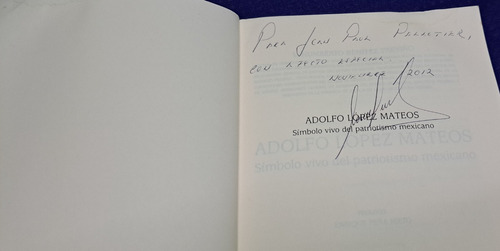 PARA JEAN PAUL PELLETIER,
CON AFECTO
NOVIEMBRE 2012
ADOLFO LÓPEZ MATEOS
Símbolo vivo del patriotismo mexicano
ADOLFO LÓPEZ MATEOS
Símbolo vivo del patriotismo mexicano